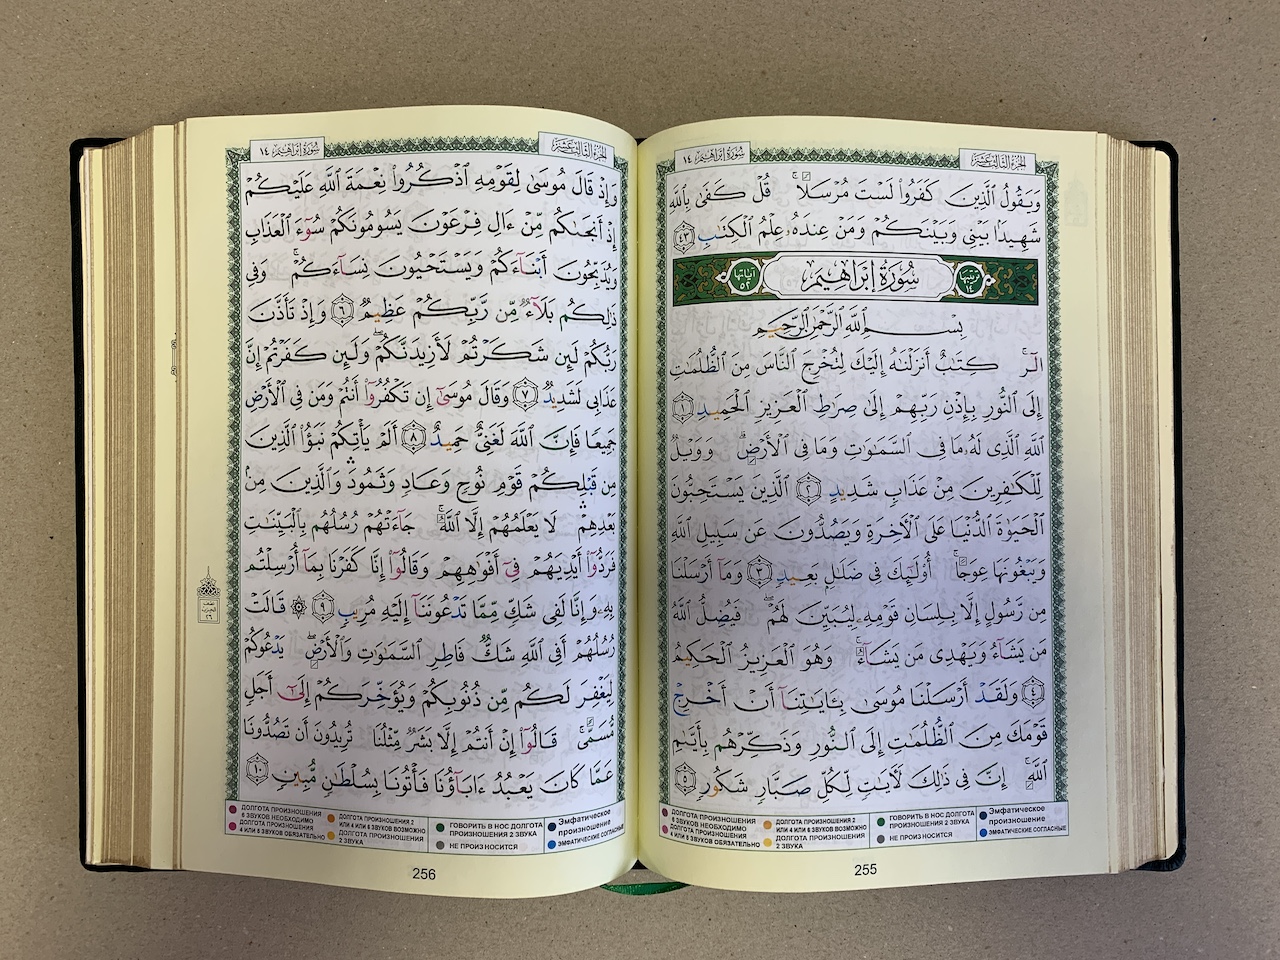 الجزء الثالث عشر
سورة إبراهيم ١٤
وَيَقُولُ ٱلَّذِينَ كَفَرُوا۟ لَسْتَ مُرْسَلًا ۚ قُلْ كَفَىٰ بِٱللَّهِ
شَهِيدًۢا بَيْنِى وَبَيْنَكُمْ وَمَنْ عِندَهُۥ عِلْمُ ٱلْكِتَٰبِ ٤٣
ترتيبها ١٤
سُورَةُ إِبْرَاهِيمَ
آياتها ٥٢
بِسْمِ ٱللَّهِ ٱلرَّحْمَٰنِ ٱلرَّحِيمِ
الٓر ۚ كِتَٰبٌ أَنزَلْنَٰهُ إِلَيْكَ لِتُخْرِجَ ٱلنَّاسَ مِنَ ٱلظُّلُمَٰتِ
إِلَى ٱلنُّورِ بِإِذْنِ رَبِّهِمْ إِلَىٰ صِرَٰطِ ٱلْعَزِيزِ ٱلْحَمِيدِ ١
ٱللَّهِ ٱلَّذِى لَهُۥ مَا فِى ٱلسَّمَٰوَٰتِ وَمَا فِى ٱلْأَرْضِ ۗ وَوَيْلٌ
لِّلْكَٰفِرِينَ مِنْ عَذَابٍ شَدِيدٍ ٢ ٱلَّذِينَ يَسْتَحِبُّونَ
ٱلْحَيَوٰةَ ٱلدُّنْيَا عَلَى ٱلْءَاخِرَةِ وَيَصُدُّونَ عَن سَبِيلِ ٱللَّهِ
وَيَبْغُونَهَا عِوَجًا ۚ أُو۟لَٰٓئِكَ فِى ضَلَٰلٍۭ بَعِيدٍ ٣ وَمَآ أَرْسَلْنَا
مِن رَّسُولٍ إِلَّا بِلِسَانِ قَوْمِهِۦ لِيُبَيِّنَ لَهُمْ ۖ فَيُضِلُّ ٱللَّهُ
مَن يَشَآءُ وَيَهْدِى مَن يَشَآءُ ۚ وَهُوَ ٱلْعَزِيزُ ٱلْحَكِيمُ
٤ وَلَقَدْ أَرْسَلْنَا مُوسَىٰ بِـَٔايَٰتِنَآ أَنْ أَخْرِجْ
قَوْمَكَ مِنَ ٱلظُّلُمَٰتِ إِلَى ٱلنُّورِ وَذَكِّرْهُم بِأَيَّىٰمِ
ٱللَّهِ ۚ إِنَّ فِى ذَٰلِكَ لَءَايَٰتٍ لِّكُلِّ صَبَّارٍ شَكُورٍ ٥
ДОЛГОТА ПРОИЗНОШЕНИЯ
6 ЗВУКОВ НЕОБХОДИМО
ДОЛГОТА ПРОИЗНОШЕНИЯ
4 ИЛИ 5 ЗВУКОВ ОБЯЗАТЕЛЬНО
ДОЛГОТА ПРОИЗНОШЕНИЯ 2
ИЛИ 4 ИЛИ 6 ЗВУКОВ ВОЗМОЖНО
ДОЛГОТА ПРОИЗНОШЕНИЯ
2 ЗВУКА
ГОВОРИТЬ В НОС ДОЛГОТА
ПРОИЗНОШЕНИЯ 2 ЗВУКА
НЕ ПРОИЗНОСИТСЯ
Эмфатическое
произношение
ЭМФАТИЧЕСКИЕ СОГЛАСНЫЕ
255
الجزء الثالث عشر
سورة إبراهيم ١٤
وَإِذْ قَالَ مُوسَىٰ لِقَوْمِهِ ٱذْكُرُوا۟ نِعْمَةَ ٱللَّهِ عَلَيْكُمْ
إِذْ أَنجَىٰكُم مِّنْ ءَالِ فِرْعَوْنَ يَسُومُونَكُمْ سُوٓءَ ٱلْعَذَابِ
وَيُذَبِّحُونَ أَبْنَآءَكُمْ وَيَسْتَحْيُونَ نِسَآءَكُمْ ۚ وَفِى
ذَٰلِكُم بَلَآءٌ مِّن رَّبِّكُمْ عَظِيمٌ ٦ وَإِذْ تَأَذَّنَ
رَبُّكُمْ لَئِن شَكَرْتُمْ لَأَزِيدَنَّكُمْ ۖ وَلَئِن كَفَرْتُمْ إِنَّ
عَذَابِى لَشَدِيدٌ ٧ وَقَالَ مُوسَىٰٓ إِن تَكْفُرُوٓا۟ أَنتُمْ وَمَن فِى ٱلْأَرْضِ
جَمِيعًا فَإِنَّ ٱللَّهَ لَغَنِىٌّ حَمِيدٌ ٨ أَلَمْ يَأْتِكُمْ نَبَؤُا۟ ٱلَّذِينَ
مِن قَبْلِكُمْ قَوْمِ نُوحٍ وَعَادٍ وَثَمُودَ ۛ وَٱلَّذِينَ مِنۢ
بَعْدِهِمْ ۛ لَا يَعْلَمُهُمْ إِلَّا ٱللَّهُ ۚ جَآءَتْهُمْ رُسُلُهُم بِٱلْبَيِّنَٰتِ
فَرَدُّوٓا۟ أَيْدِيَهُمْ فِىٓ أَفْوَٰهِهِمْ وَقَالُوٓا۟ إِنَّا كَفَرْنَا بِمَآ أُرْسِلْتُم
بِهِۦ وَإِنَّا لَفِى شَكٍّ مِّمَّا تَدْعُونَنَآ إِلَيْهِ مُرِيبٍ ٩ ۞ قَالَتْ
رُسُلُهُمْ أَفِى ٱللَّهِ شَكٌّ فَاطِرِ ٱلسَّمَٰوَٰتِ وَٱلْأَرْضِ ۖ يَدْعُوكُمْ
لِيَغْفِرَ لَكُم مِّن ذُنُوبِكُمْ وَيُؤَخِّرَكُمْ إِلَىٰٓ أَجَلٍ
مُّسَمًّى ۚ قَالُوٓا۟ إِنْ أَنتُمْ إِلَّا بَشَرٌ مِّثْلُنَا تُرِيدُونَ أَن تَصُدُّونَا
عَمَّا كَانَ يَعْبُدُ ءَابَآؤُنَا فَأْتُونَا بِسُلْطَٰنٍ مُّبِينٍ ١٠
نصف
الحزب
٢٦
ДОЛГОТА ПРОИЗНОШЕНИЯ
6 ЗВУКОВ НЕОБХОДИМО
ДОЛГОТА ПРОИЗНОШЕНИЯ
4 ИЛИ 5 ЗВУКОВ ОБЯЗАТЕЛЬНО
ДОЛГОТА ПРОИЗНОШЕНИЯ 2
ИЛИ 4 ИЛИ 6 ЗВУКОВ ВОЗМОЖНО
ДОЛГОТА ПРОИЗНОШЕНИЯ
2 ЗВУКА
ГОВОРИТЬ В НОС ДОЛГОТА
ПРОИЗНОШЕНИЯ 2 ЗВУКА
НЕ ПРОИЗНОСИТСЯ
Эмфатическое
произношение
ЭМФАТИЧЕСКИЕ СОГЛАСНЫЕ
256